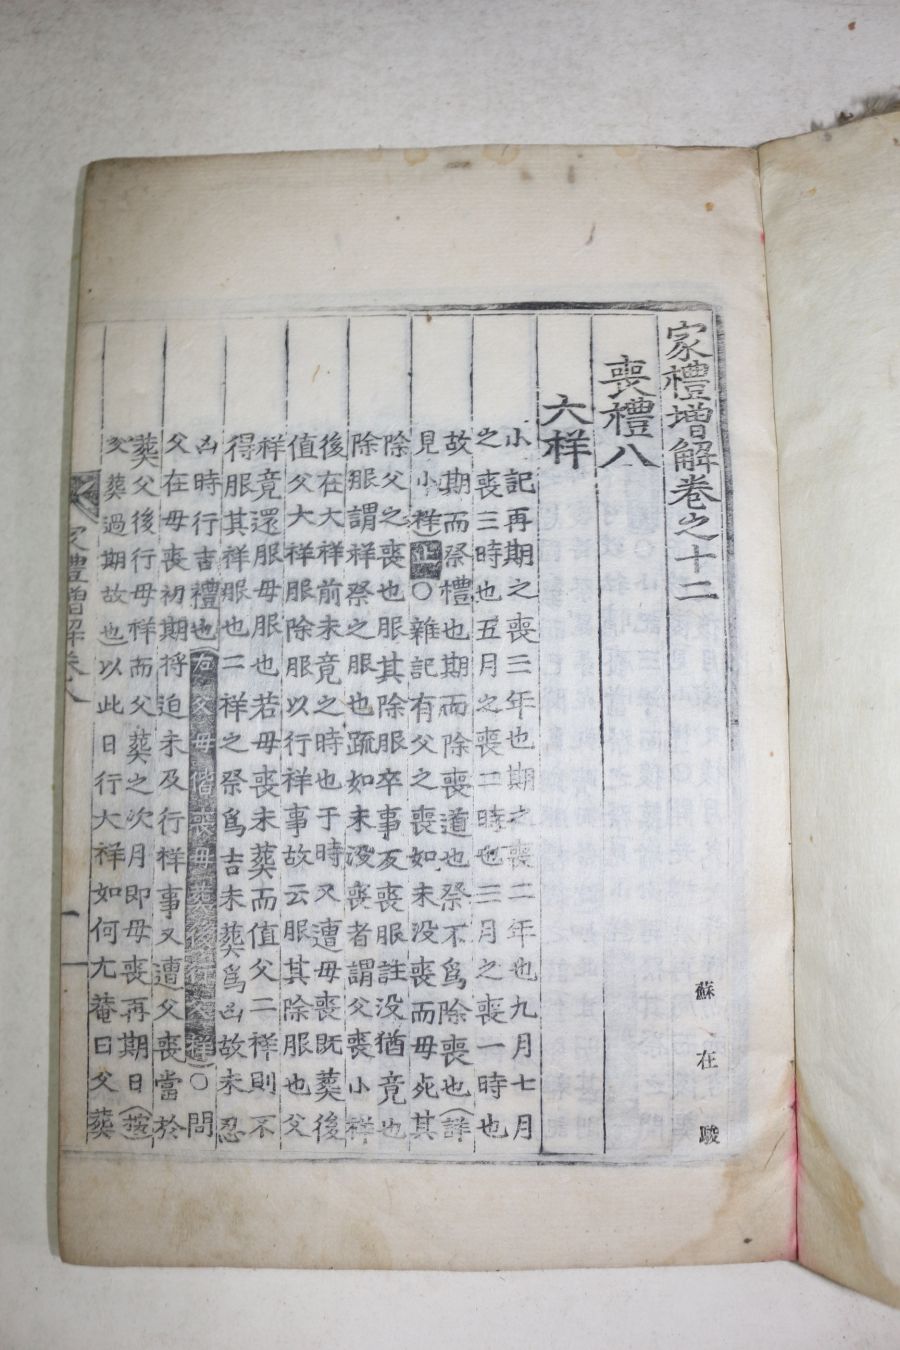 家禮增解卷之十二
蘇在駿
喪禮八
大祥
小記再期之喪三年也期之喪二年也九月七月
之喪三時也五月之喪二時也三月之喪一時也
故期而祭禮也期而除喪道也祭不爲除喪也(詳
見小祥)○雜記有父之喪如未没喪而母死其
除父之喪也服其除服卒事反喪服註没猶竟也
除服謂祥祭之服也疏如未没喪者謂父喪小祥
後在大祥前未竟之時也于時又遭母喪既葬後
值父大祥服除服以行祥事故云服其除服也父
祥竟還服母服也若母喪未葬而值父二祥則不
得服其祥服也二祥之祭爲吉未葬爲凶故未忍
凶時行吉禮也(右父母偕喪母葬後行父祥)○問
父在母喪初期将迫未及行祥事又遭父喪當於
葬父後行母祥而父葬之次月即母喪再期日(葬
父葬過期故也以此日行大祥如何尤菴曰父葬
家禮增解卷八
一